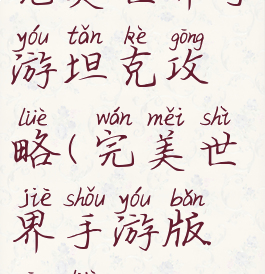 yóu tǎn kè gōng
游坦克攻
lüè wán měi shì
略(完美世
jiè shǒu yóu bǎn
界手游版